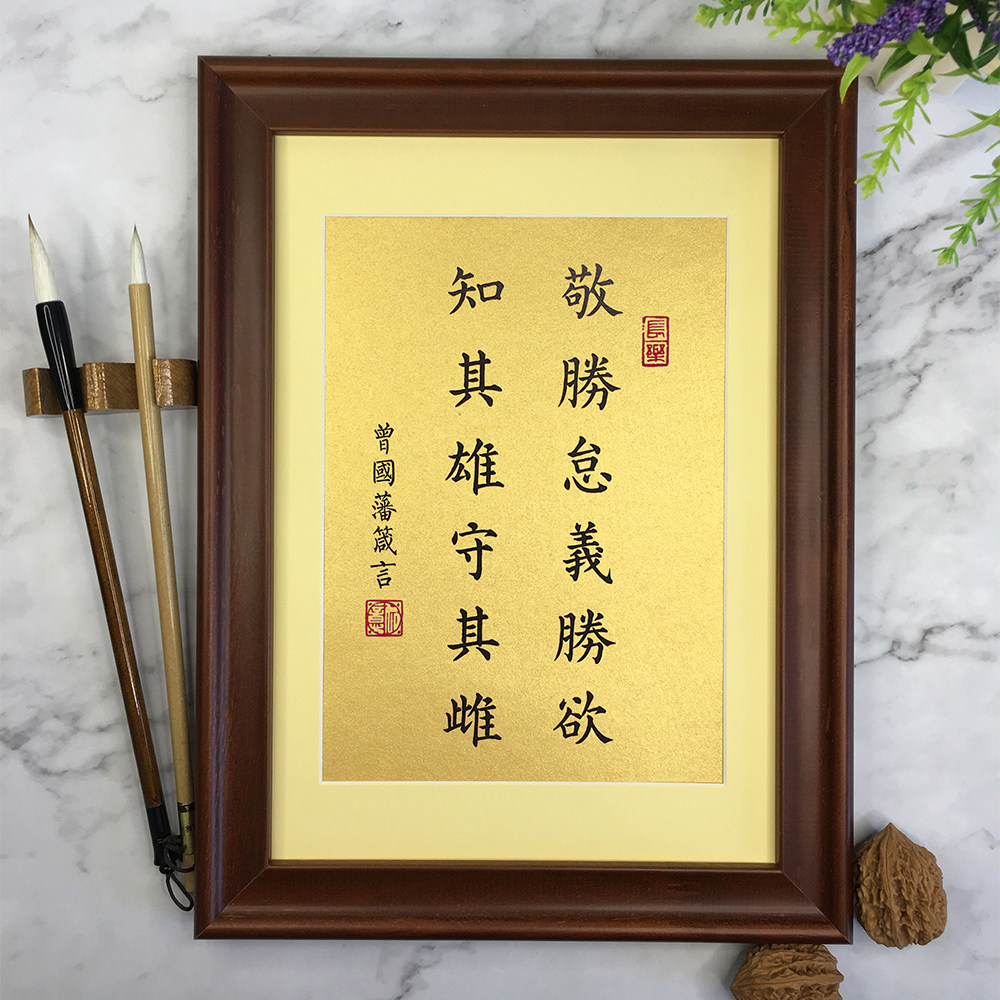 長樂
敬勝怠義勝欲
知其雄守其雌
曾國藩箴言